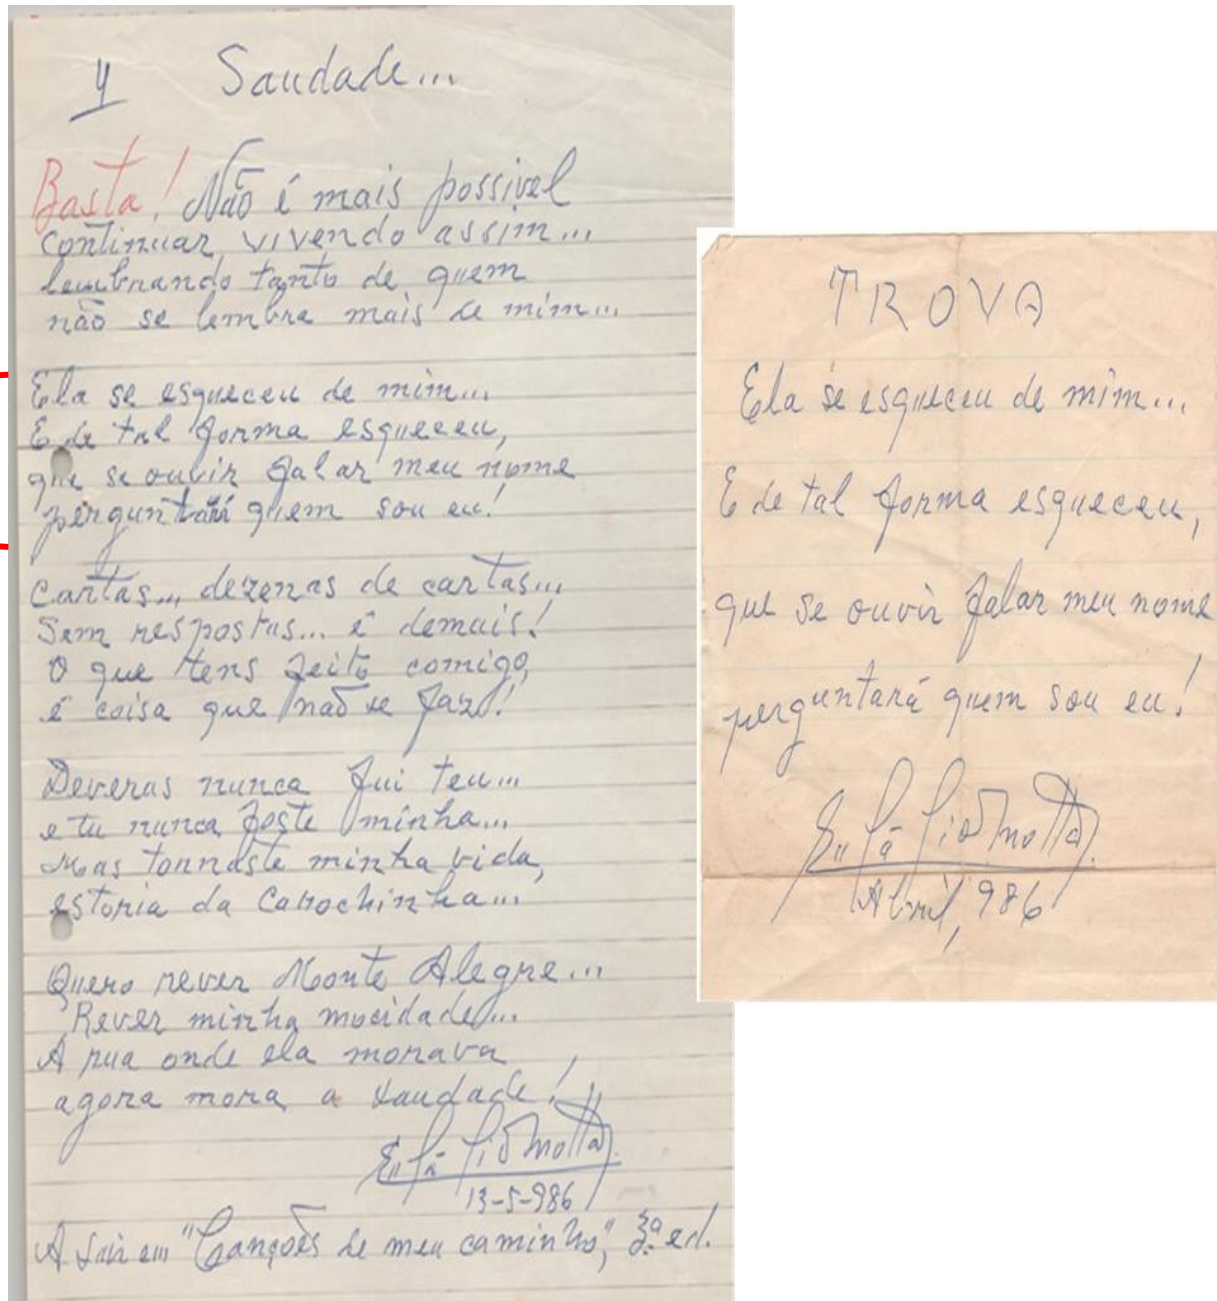 4 Saudade...
Basta! Não é mais possivel
continuar vivendo assim...
lembrando tanto de quem
não se lembra mais de mim...
Ela se esqueceu de mim...
E de tal forma esqueceu,
que se ouvir falar meu nome
perguntará quem sou eu!
Cartas... dezenas de cartas...
Sem respostas... é demais!
O que tens feito comigo,
é coisa que não se faz!
Deveras nunca fui teu...
e tu nunca foste minha...
Mas tornaste minha vida,
estoria da Carochinha...
Quero rever Monte Alegre...
Rever minha mocidade...
A rua onde ela morava
agora mora a saudade!
13-5-986
A sair em "Canções de meu caminho", 3ª ed.
TROVA
Ela se esqueceu de mim...
E de tal forma esqueceu,
que se ouvir falar meu nome
perguntará quem sou eu!
Abril, 986